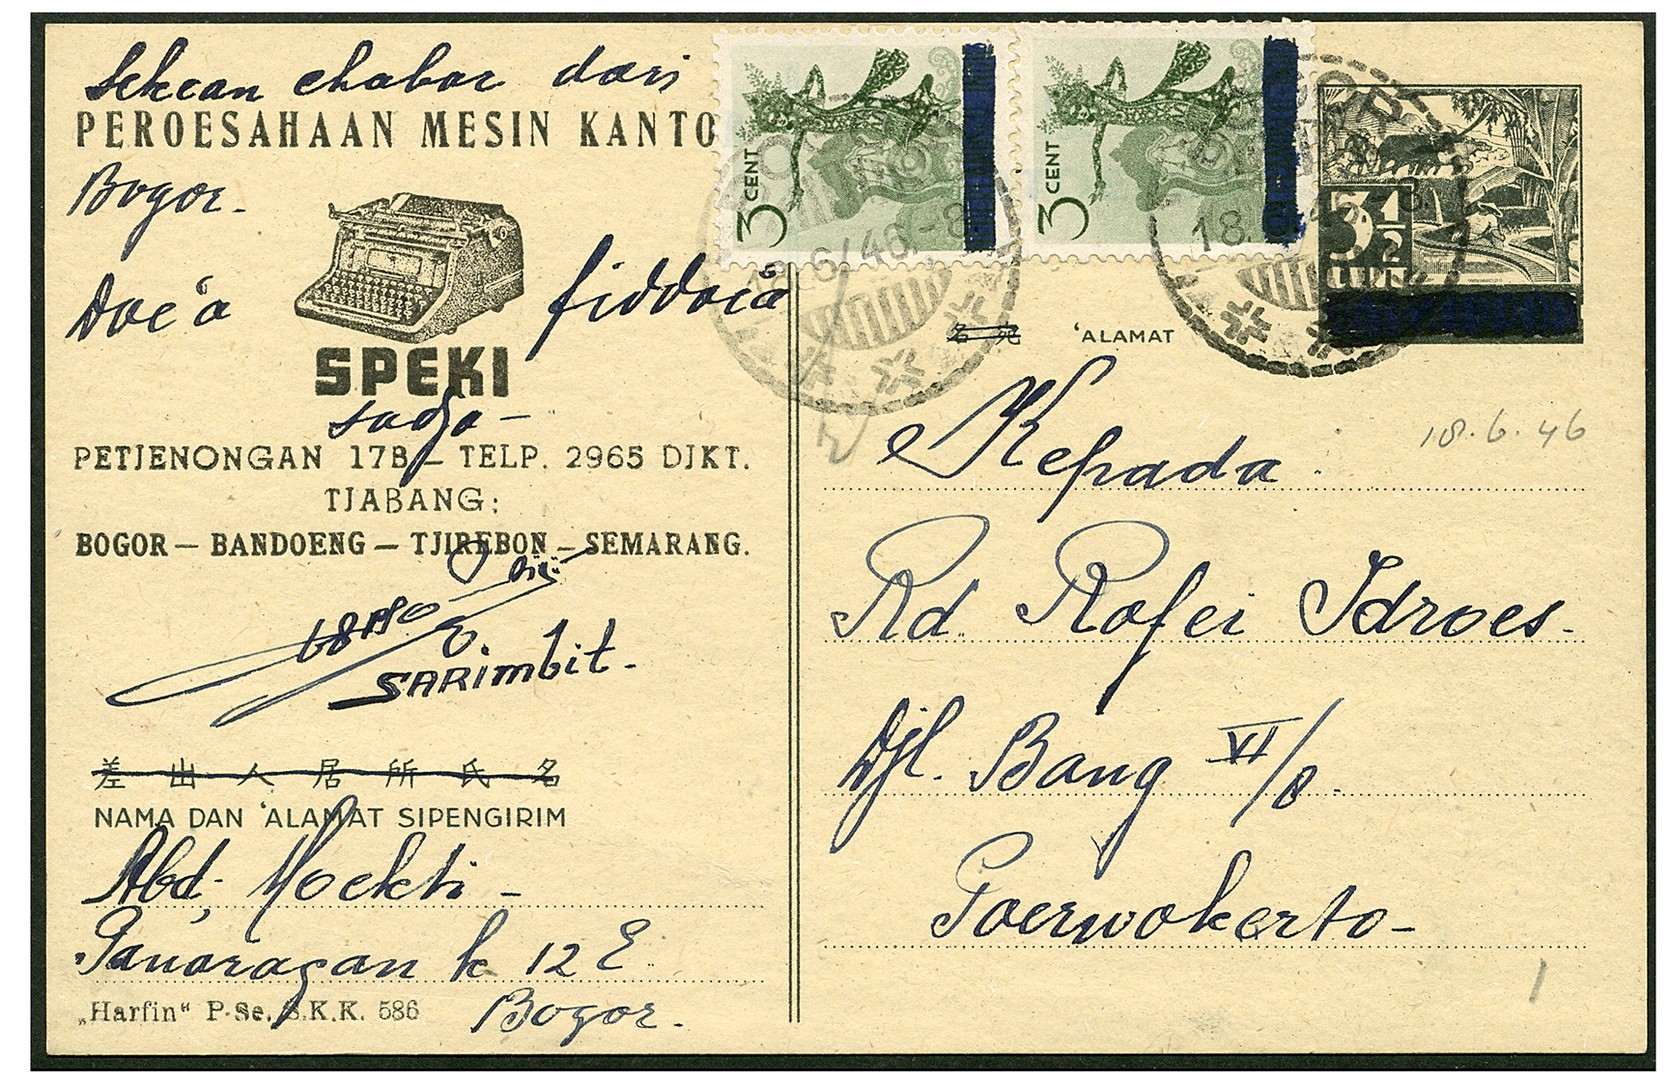 Sekean chabar dari
PEROESAHAAN MESIN KANTO
Bogor.
Doe'a fiddoeá
SPEKI
sadja -
PETJENONGAN 17B - TELP. 2965 DJKT.
TJABANG:
BOGOR — BANDOENG — TJIREBON — SEMARANG.
SARimbit.
差出人居所氏名
NAMA DAN 'ALAMAT SIPENGIRIM
Abd. Moekti -
Panaragan k 12 E
Bogor.
„Harfin" P-Se. S.K.K. 586
3 CENT
3 CENT
3½
CENT
18.6/46.-8
18.
名宛 'ALAMAT
18.6.46
Kepada
Rd. Rofei Idroes.
Djl. Bang VI/8.
Poerwokerto -
1